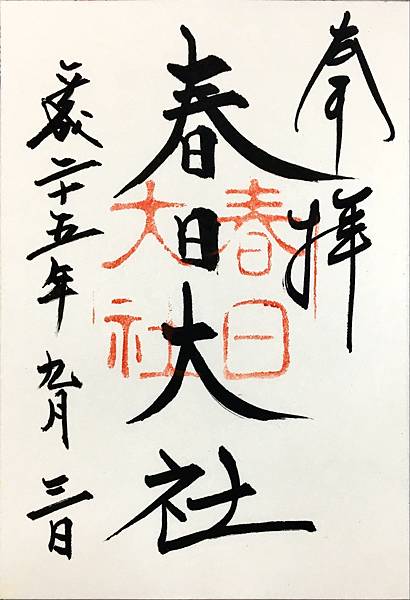 奉拝
春日大社
平成二十五年 九月 三日
春日
大社